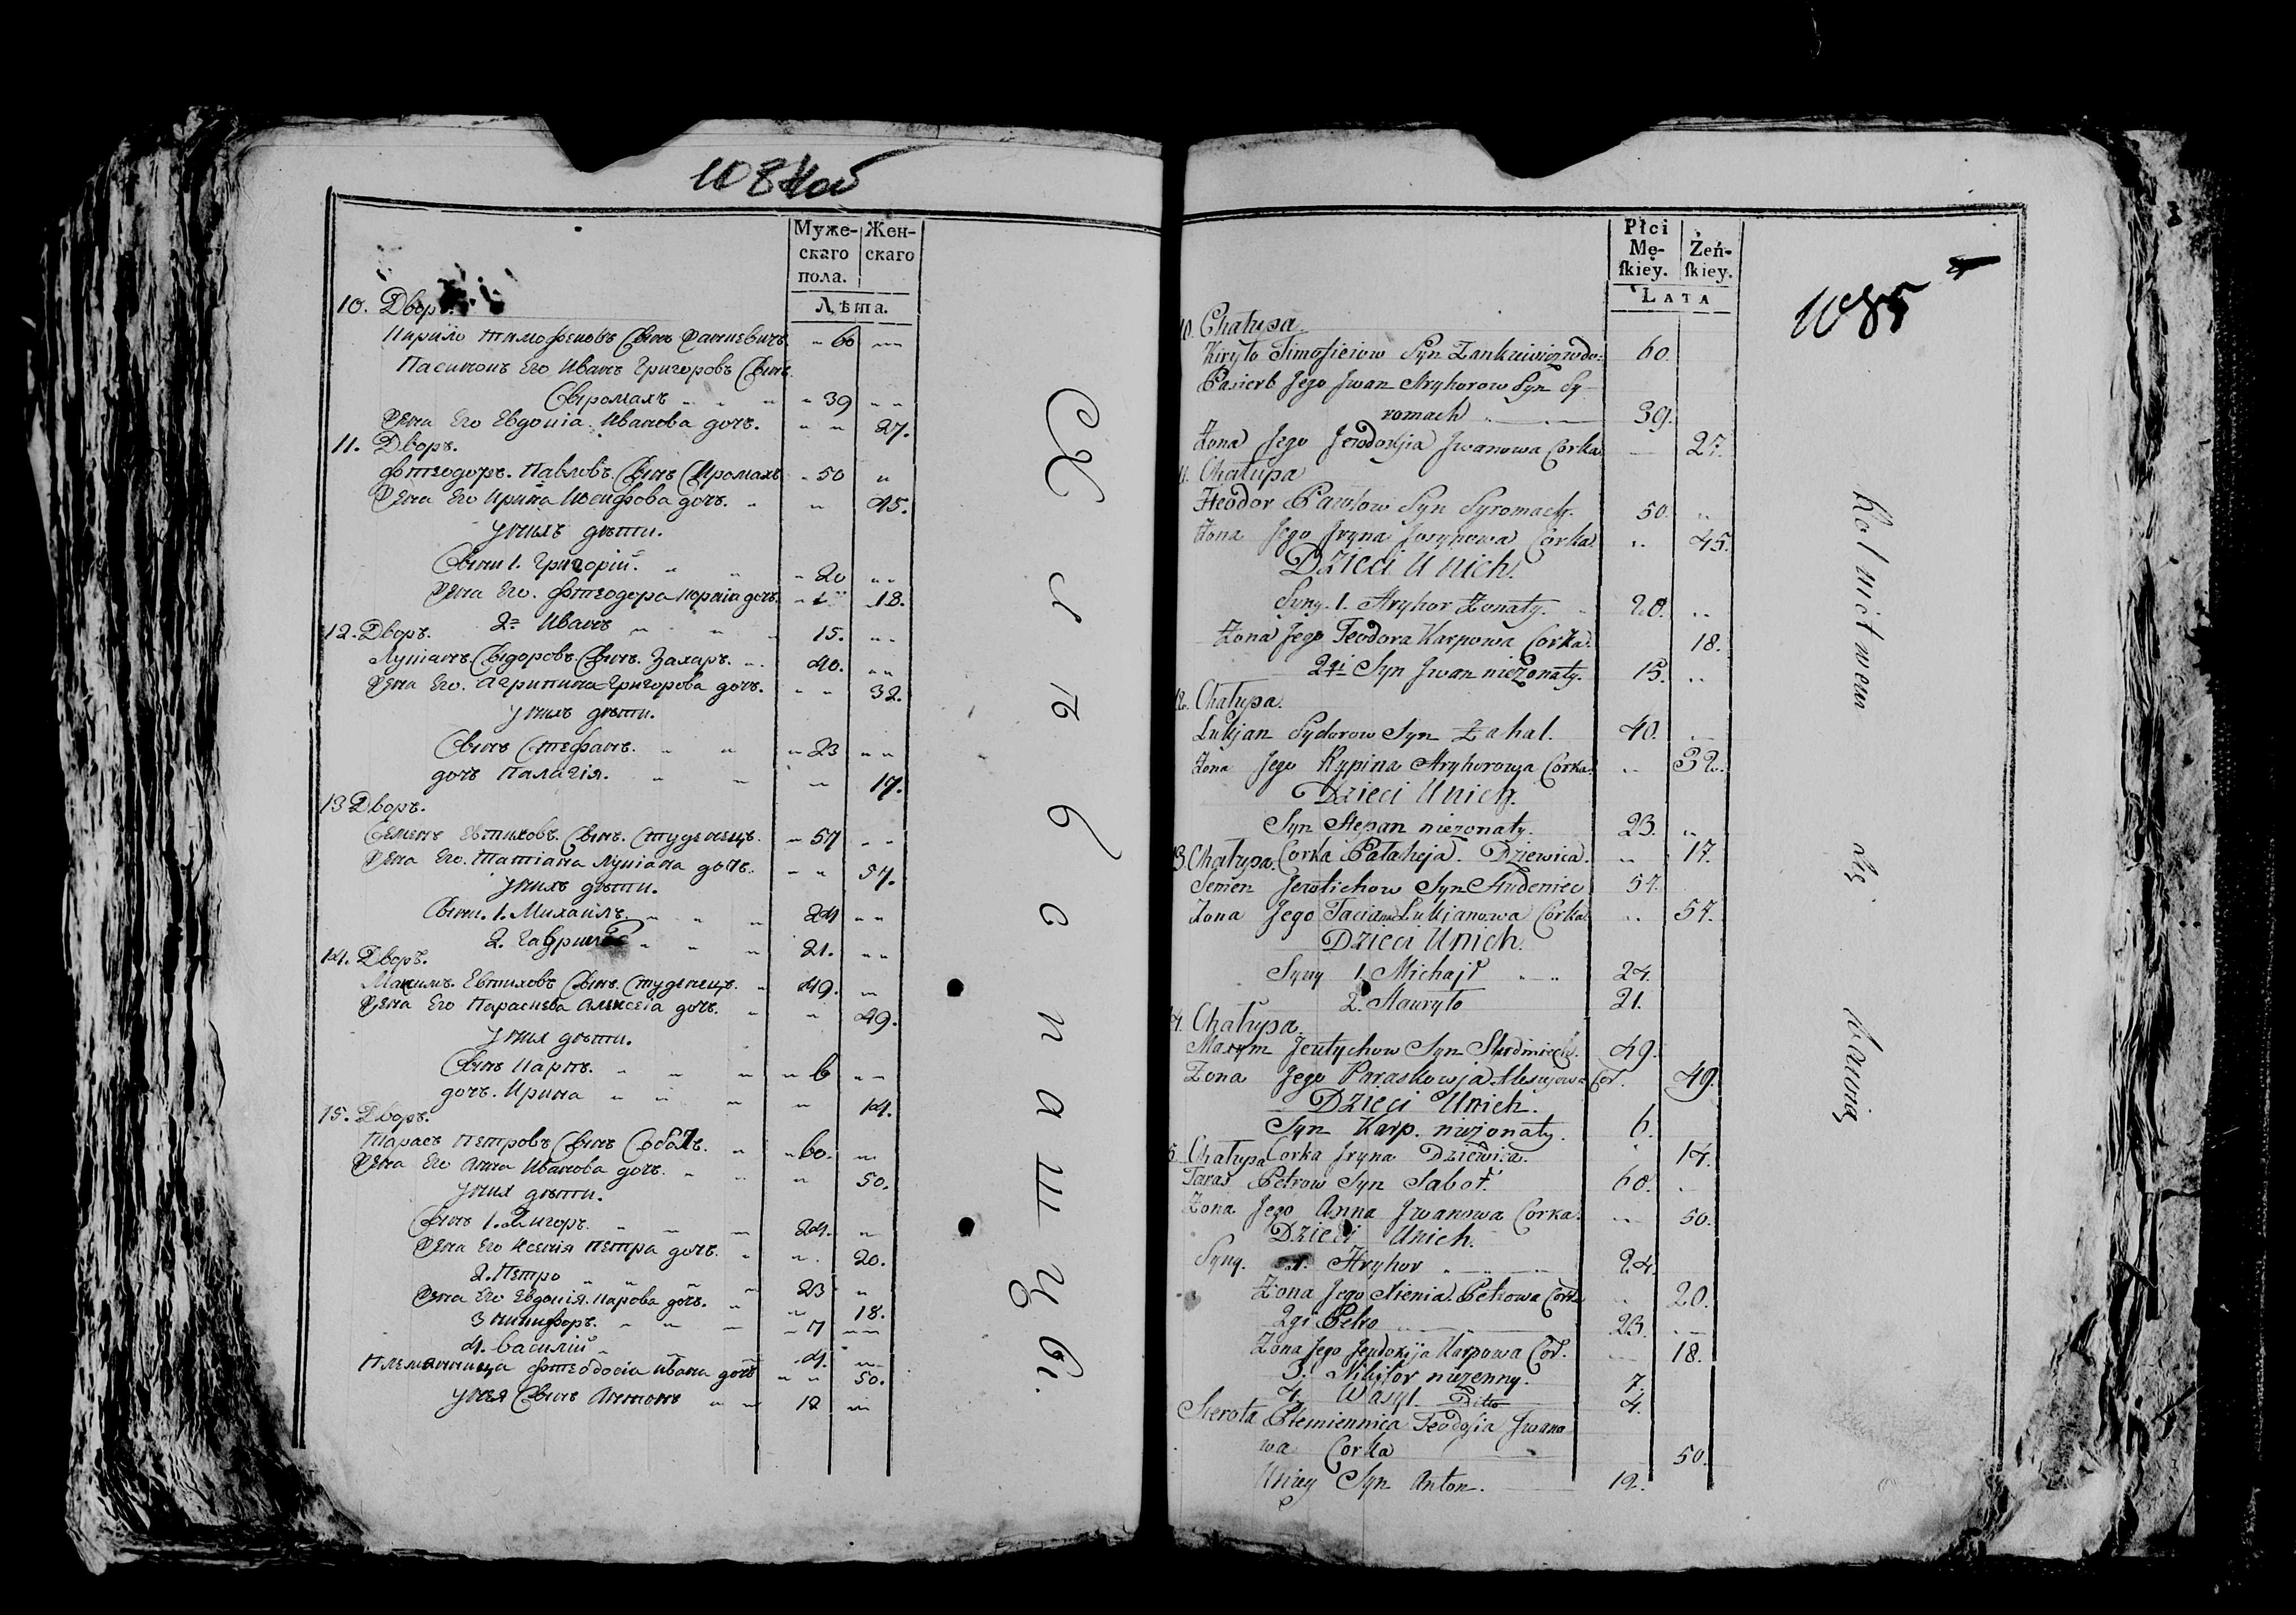 1084 об
Муже-скаго пола.
Жен-скаго
Лѣта.
10. Дворъ.
Кирило Тимофеиовъ Сынъ Занкевичъ. 60
Пасинокъ Его Иванъ Григоровъ Сынъ
Сыромахъ 39
Жена Его Евдокіа Иванова дочь. 27.
11. Дворъ.
Фтеодоръ Павловъ Сынъ Сиромахъ 50
Жена Его Ирина Иосифова дочь. 45.
У нихъ дѣти.
Сыны 1. Григорій. 20
Жена Его Фтеодора Карпіа дочь. 18.
2й Иванъ 15.
12. Дворъ.
Лукіанъ Сыдоровъ Сынъ Захаръ. 40.
Жена Его Агрипина Григорова дочь. 32.
У нихъ дѣти.
Сынъ Стефанъ. 23
дочь Палагія. 17.
13 Дворъ.
Семенъ Евтиховъ Сынъ Студенецъ. 57
Жена Его Татіана Лукіана дочь. 57.
У нихъ дѣти.
Сыны 1. Михаилъ. 24
2. Гаврило 21.
14. Дворъ.
Максимъ Евтиховъ Сынъ Студенецъ. 49.
Жена Его Параскева Алексеіа дочь. 49.
У них дѣти.
Сынъ Карпъ. 6
дочь Ирина 14.
15. Дворъ.
Тарасъ Петровъ Сынъ Соболъ. 60.
Жена Его Анна Иванова дочь. 50.
У них дѣти.
Сынъ 1. Григоръ. 24.
Жена Его Ксенія Петра дочь. 20.
2. Петро 23
Жена Его Евдокія Карпова дочь. 18.
3 Никифоръ. 7
4. Василій 4.
Племянница Фтеодосіа Ивана дочь 50.
У нея Сынъ Антонъ 12
Скабспашцы.
Płci Mę-ſkiey.
Żeń-ſkiey.
Lata
1085
10. Chałupa.
Kiryło Timofieiow Syn Zankiewicz wdo: 60.
Pasierb Jego Jwan Hryhorow Syn Sy-
romach 39.
Zona Jego Jewdokija Jwanowa Corka. 27.
11. Chałupa
Fteodor Pawłow Syn Syromach. 50.
Zona Jego Jryna Josypowa Corka. 45.
Dzieci U nich.
Syny. 1. Hryhor Zonaty. 20.
Zona Jego Teodora Karpowa Corka. 18.
2gi Syn Jwan niezonaty. 15.
12. Chałupa.
Lukjan Sydorow Syn Zahal. 40.
Zona Jego Rypina Hryhorowa Corka. 32.
Dzieci U nich.
Syn Stepan niezonaty. 23.
13 Chałupa. Corka Pałaheja. Dziewica. 17.
Semen Jewtichow Syn Studeniec 57.
Zona Jego Taciana Lukjanowa Corka 57.
Dzieci U nich.
Syny 1. Michajł 24.
2. Hawryło 21.
14. Chałupa.
Maxym Jewtychow Syn Studiniec. 49.
Zona Jego Paraskowja Alexiejowa Cor. 49.
Dzieci U nich.
Syn Karp. niezonaty. 6.
15. Chałupa Corka Jryna Dziewica. 14.
Taras Petrow Syn Saboł. 60.
Zona Jego Anna Jwanowa Corka. 50.
Dzieci U nich.
Syny. 1. Hryhor 24.
Zona Jego Xienia Petrowa Corka 20.
2gi Petro 23.
Zona Jego Jewdokija Karpowa Cor. 18.
3. Nikifor niezenny. 7.
4. Wasyl. Ditto 4.
Sierota Plemiennica Teodosia Jwano
wa Corka 50.
U niey Syn Anton. 12.
Rolnictwem się bawią